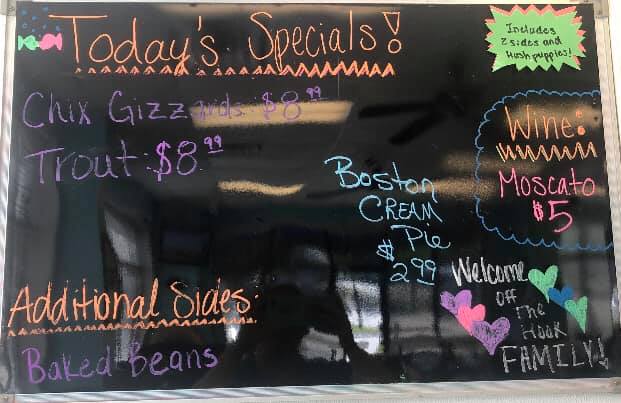 Today's Specials!
Includes
2 sides and
Hushpuppies!
Chix Gizzards: $8.99
Trout: $8.99
Wine:
Moscato
$5
Boston
CREAM
Pie
$2.99
Welcome
OFF
The
Hook
FAMILY!
Additional Sides:
Baked Beans